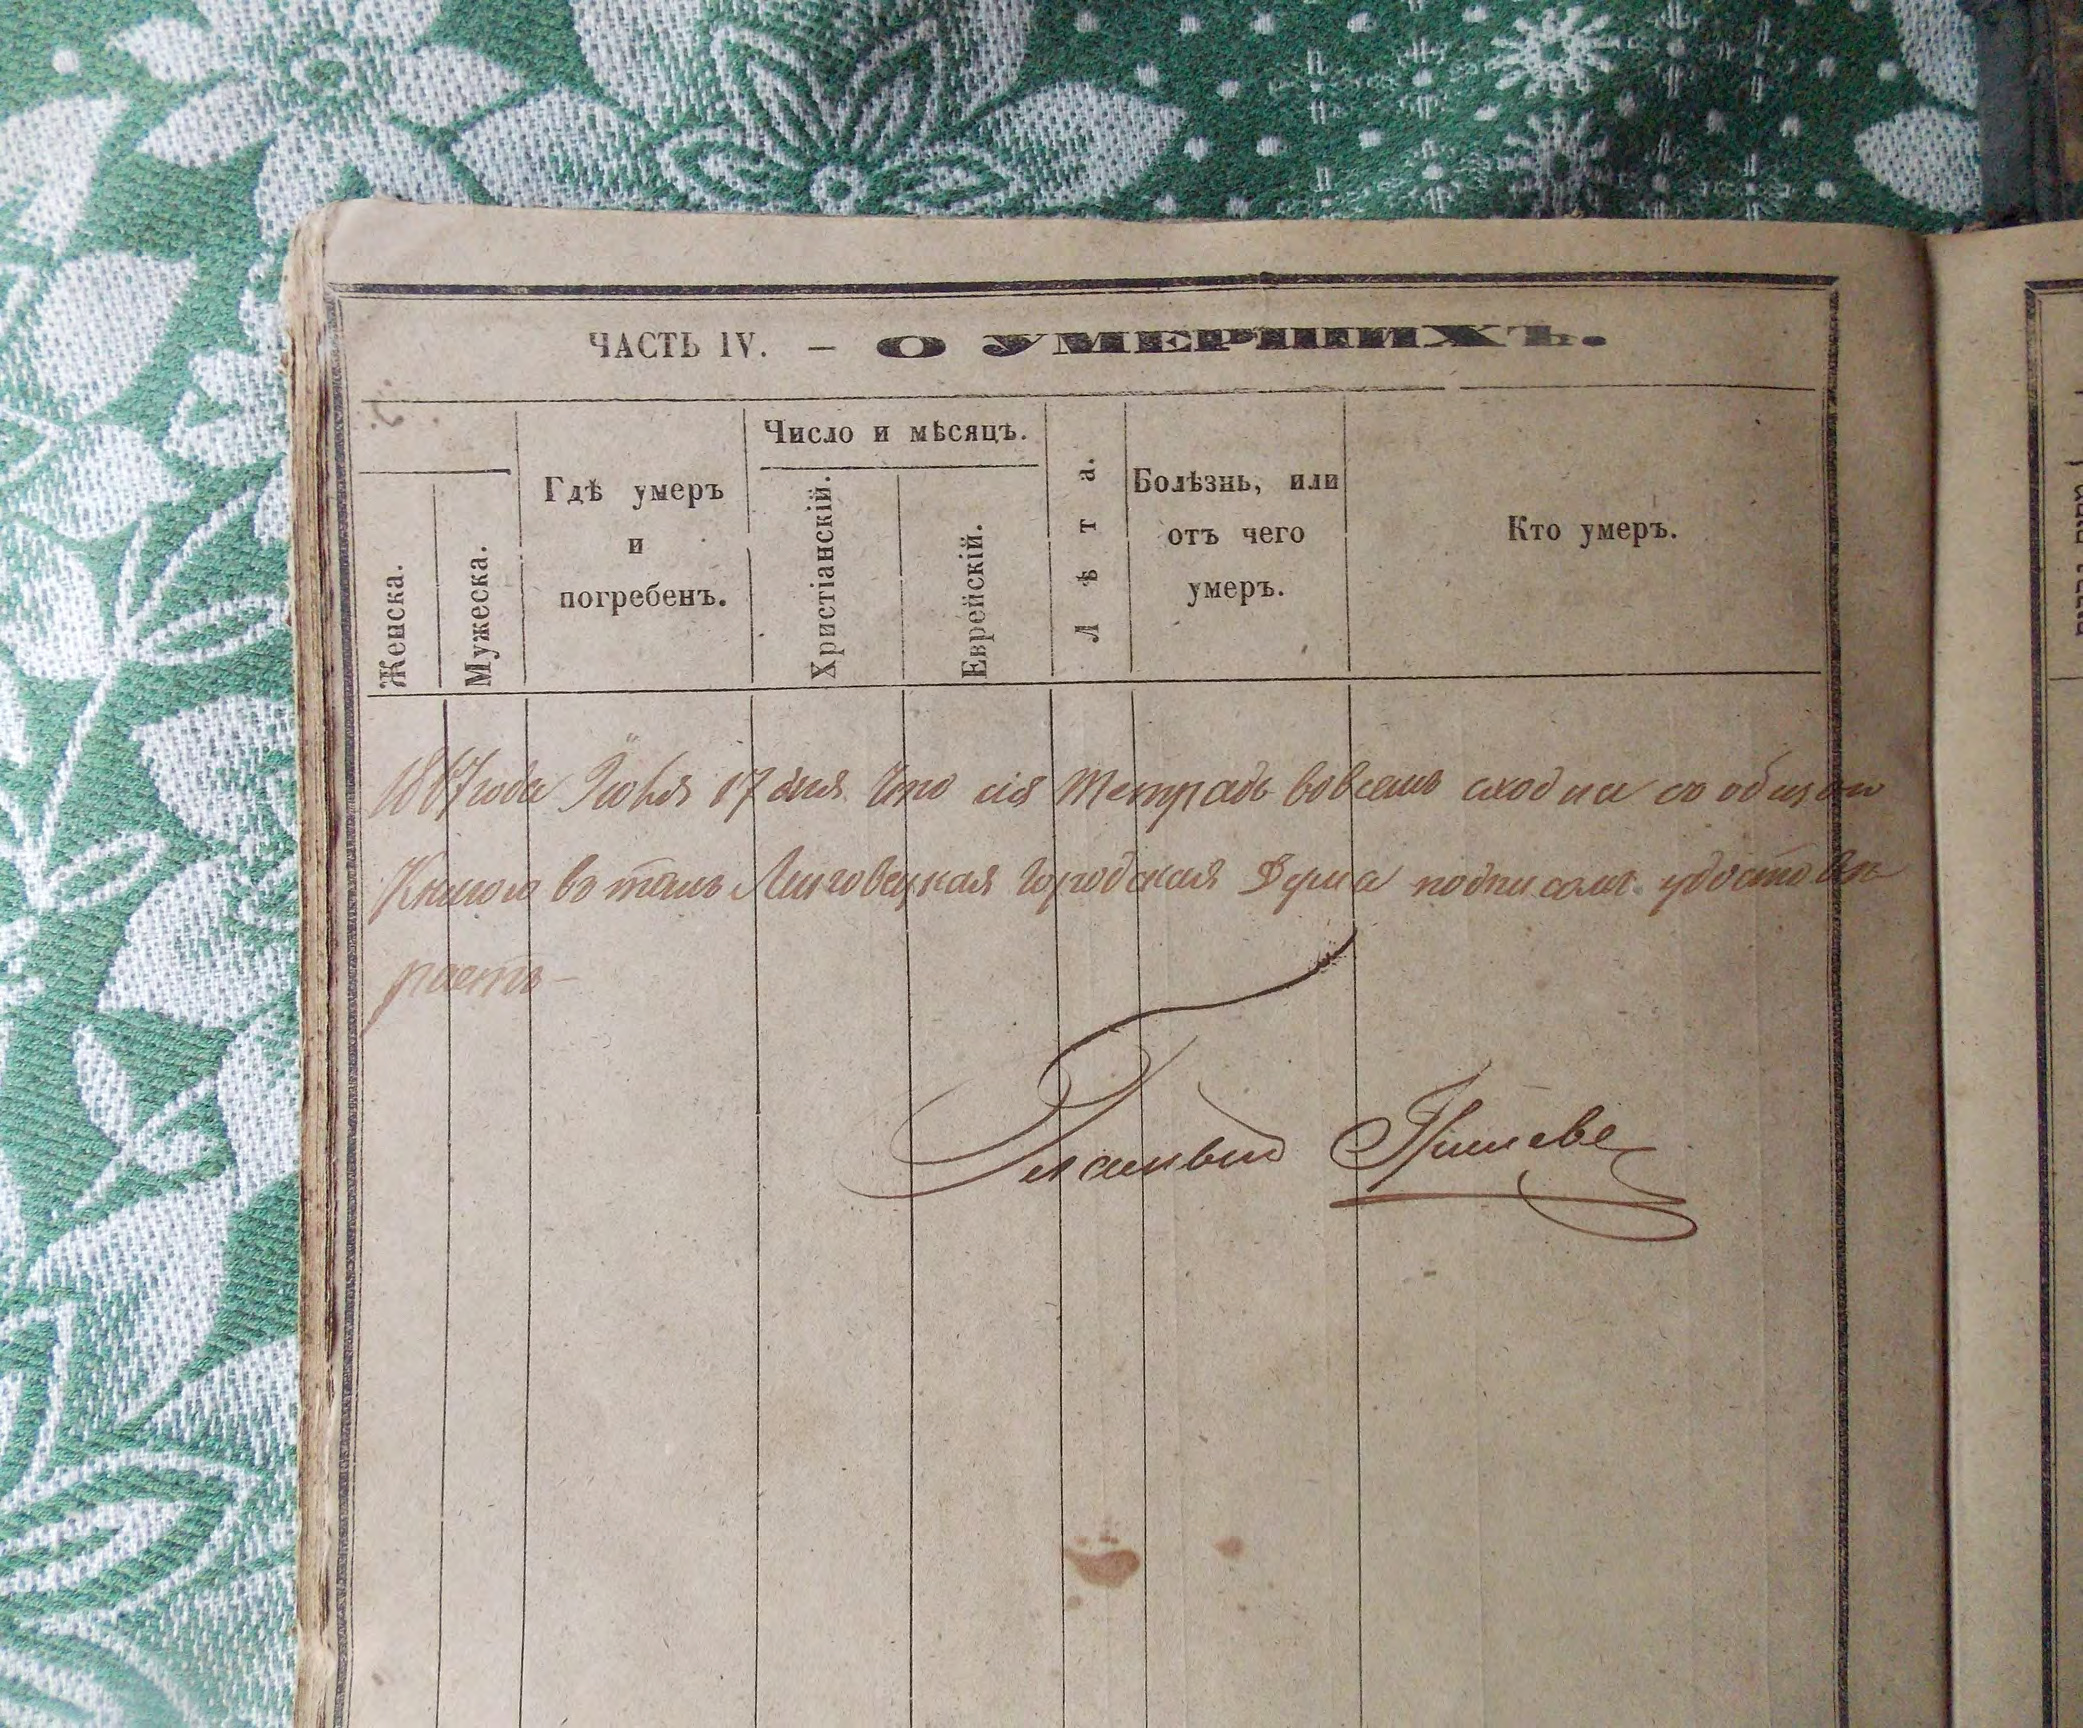 ЧАСТЬ IV. — О УМЕРШИХЪ.
Женска.
Мужеска.
Гдѣ умеръ
и
погребенъ.
Число и мѣсяцъ.
Христіанскій.
Еврейскій.
Лѣта.
Болѣзнь, или
отъ чего
умеръ.
Кто умеръ.
1867 года 17 дня Что сія Тетрадь вовсемъ сходна съ общою
Книгою въ томъ Липовецкая Городская Дума подписомъ удостовѣ
ряетъ —
Гласный